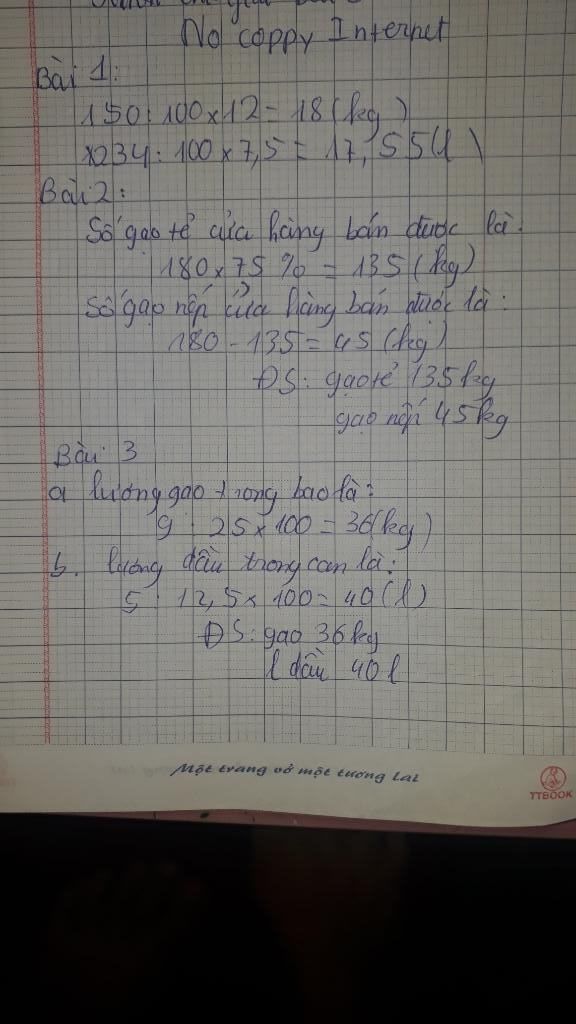 No coppy Internet
Bài 1:
150 : 100 x 12 = 18 (kg)
x234 : 100 x 7,5 = 17,55
Bài 2:
Số gạo tẻ cửa hàng bán được là:
180 x 75 % = 135 (kg)
Số gạo nếp cửa hàng bán được là:
180 - 135 = 45 (kg)
ĐS: gạo tẻ 135kg
gạo nếp 45kg
Bài 3
a lượng gạo trong bao là:
9 : 25 x 100 = 36(kg)
b. lượng dầu trong can là:
5 : 12,5 x 100 = 40 (l)
ĐS: gạo 36kg
l dầu 40l
Một trang vở một tương lai
TTBOOK